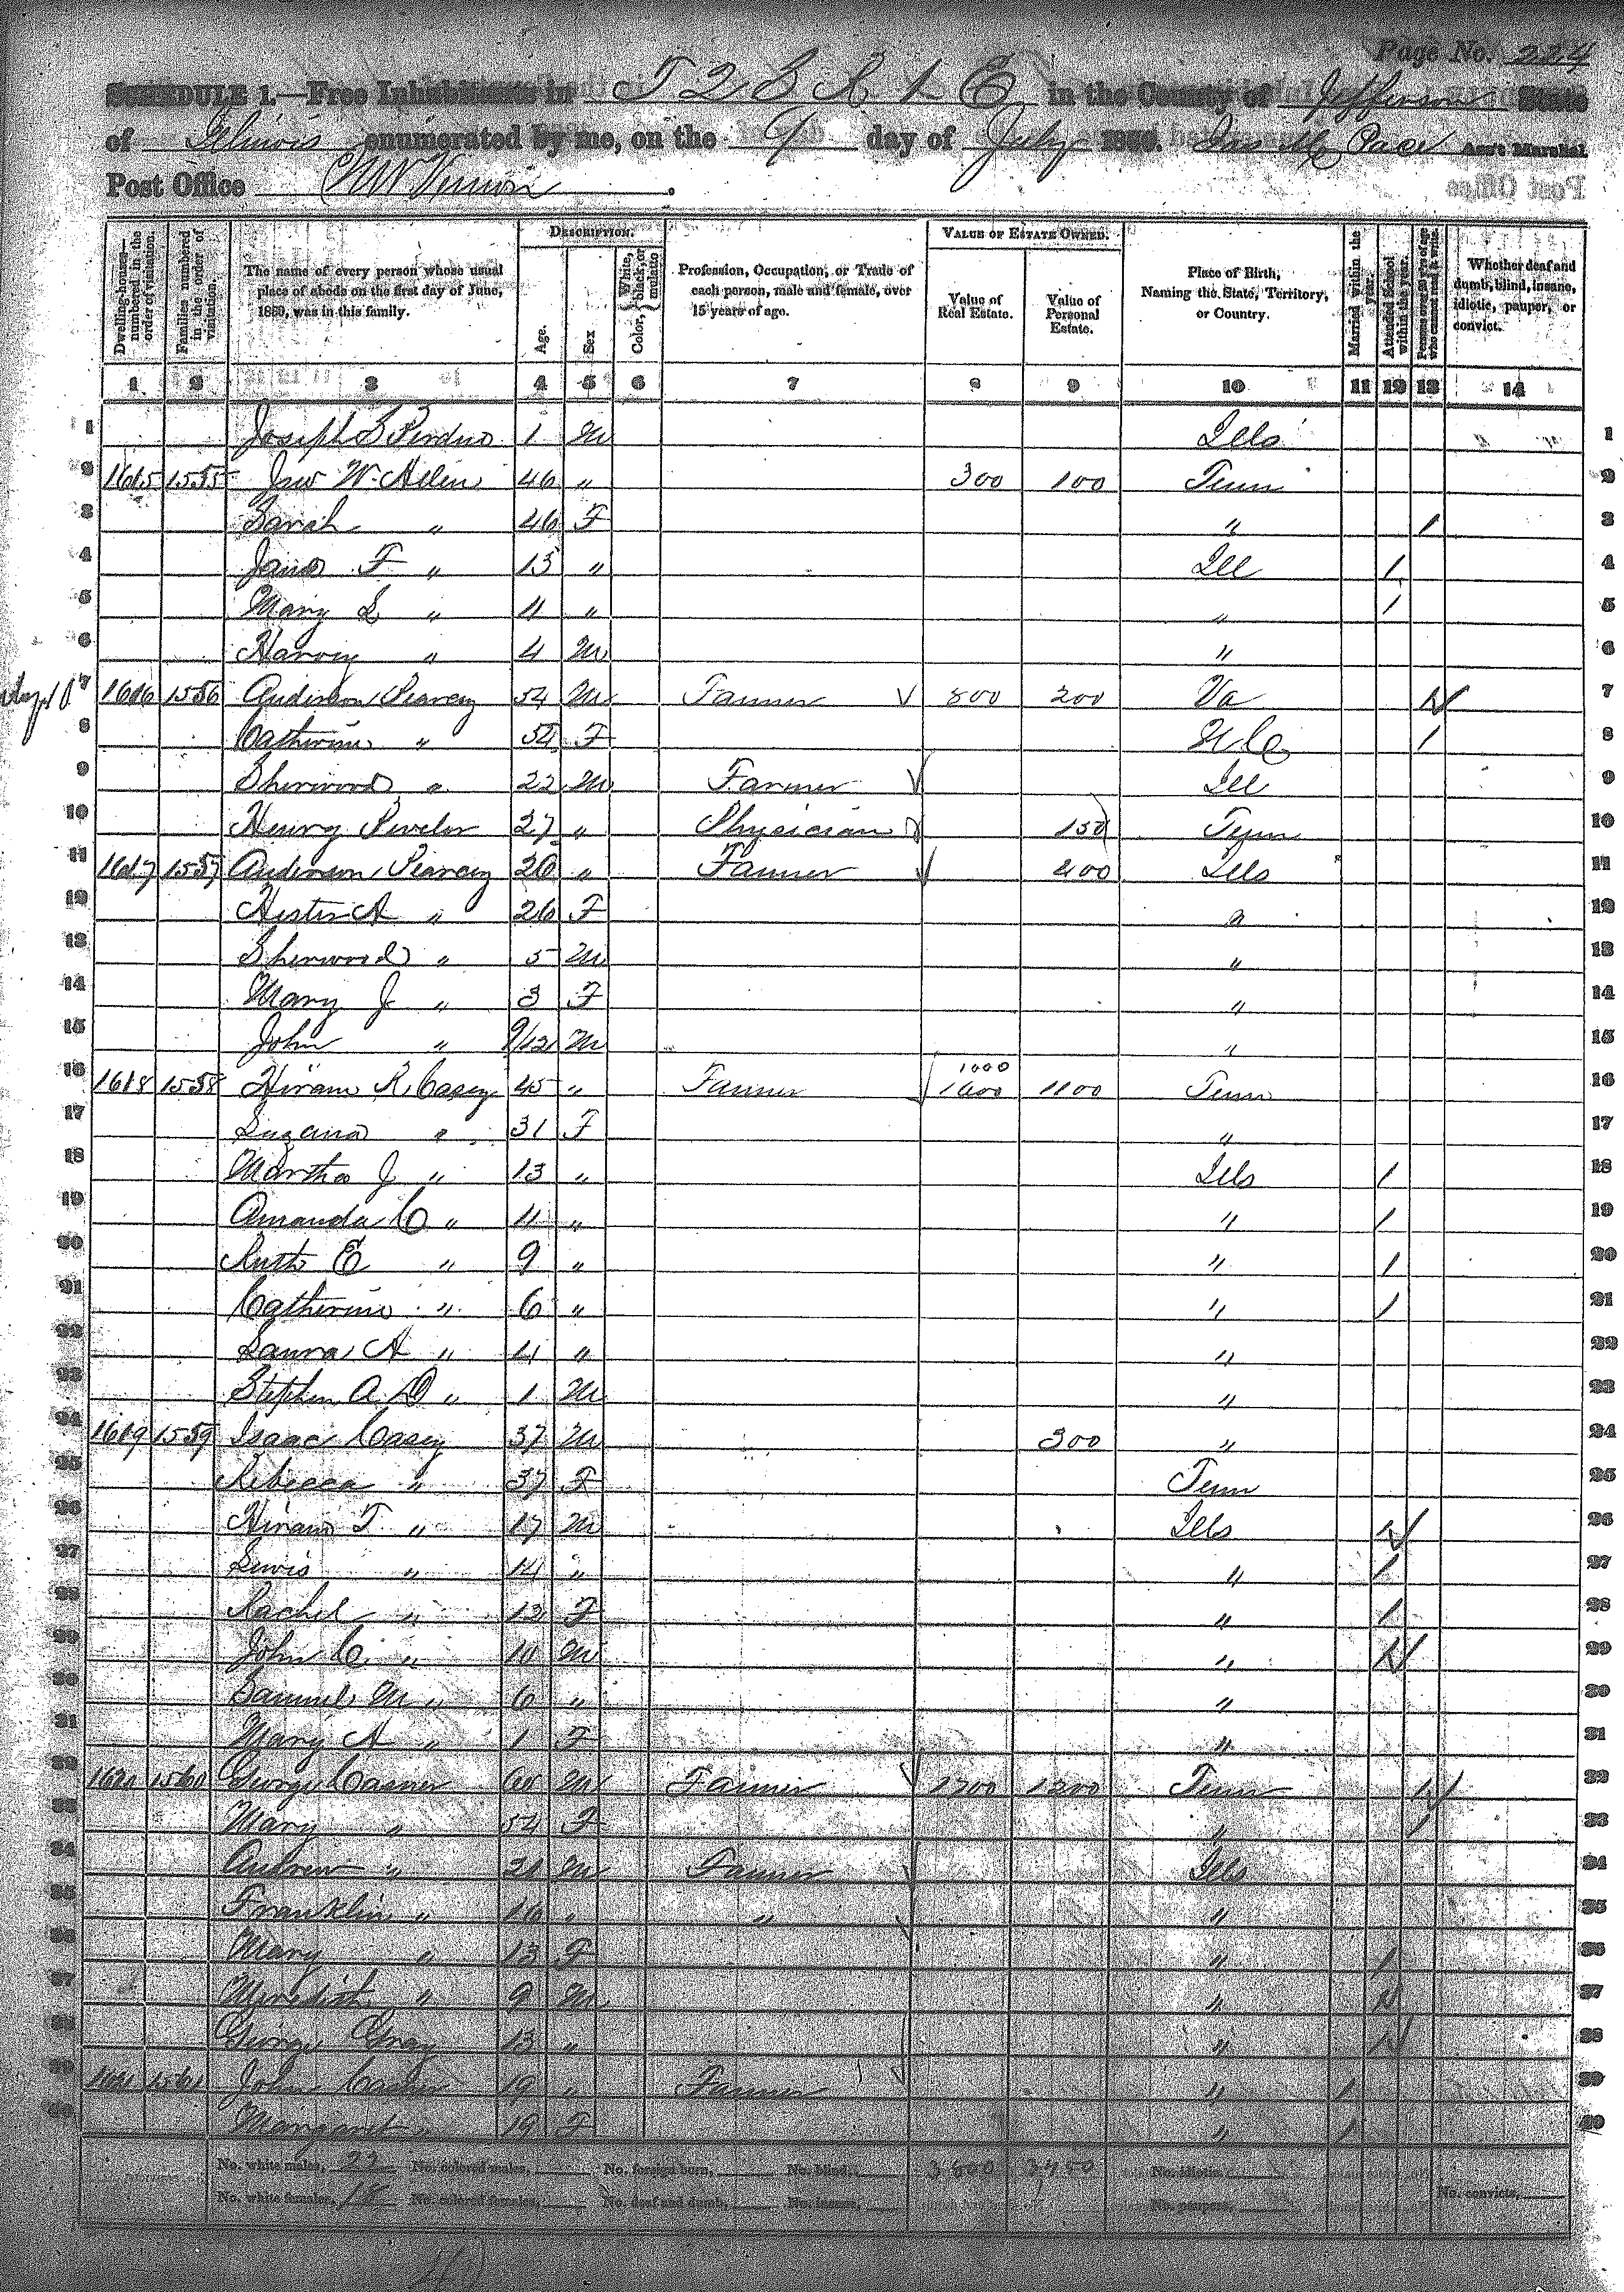 Page No. 224
SCHEDULE 1.—Free Inhabitants in T 2 S R 1 E in the County of Jefferson State
of Illinois enumerated by me, on the 9 day of July 1860. Pace Ass't Marshal.
Post Office Mt Vernon.
Dwelling-houses—numbered in the order of visitation.
Families numbered in the order of visitation.
The name of every person whose usual place of abode on the first day of June, 1860, was in this family.
DESCRIPTION.
Age.
Sex
Color, White, black, or mulatto
Profession, Occupation, or Trade of each person, male and female, over 15 years of age.
VALUE OF ESTATE OWNED.
Value of Real Estate.
Value of Personal Estate.
Place of Birth, Naming the State, Territory, or Country.
Married within the year.
Attended School within the year.
Persons over 20 y'rs of age who cannot read & write.
Whether deaf and dumb, blind, insane, idiotic, pauper, or convict.
1 2 3 4 5 6 7 8 9 10 11 12 13 14
1 Joseph S Perdue 1 M Ills 1
2 1615 1555 Jno W. Allen 46 " 300 100 Tenn 2
3 Sarah " 46 F " 1 3
4 F " 13 " Ill 1 4
5 Mary L " 11 " " 1 5
6 Harvey " 4 M " 6
7 1616 1556 Anderson Piercey 54 M Farmer 800 200 Va 1 7
8 Catherine " 54 F N C 1 8
9 Sherwood " 22 M Farmer Ill 9
10 Henry 27 " Physician 150 Tenn 10
11 1617 1557 Anderson Piercey 26 " Farmer 400 Ills 11
12 Hester A " 26 F " 12
13 Sherwood " 5 M " 13
14 Mary J " 3 F " 14
15 John " 9/12 M " 15
16 1618 1558 Hiram R Casey 45 " Farmer 1000 1100 Tenn 16
17 Suzana " 31 F " 17
18 Martha J " 13 " Ills 1 18
19 Amanda C " 11 " " 1 19
20 Ruth E " 9 " " 1 20
21 Catherine " 6 " " 1 21
22 Laura A " 4 " " 22
23 Stephen A D " 1 M " 23
24 1619 1559 Isaac Casey 37 M 300 " 24
25 Rebecca " 37 F Tenn 25
26 Hiram T " 17 M Ills 1 26
27 Lewis " 14 " " 1 27
28 Rachel " 13 F " 1 28
29 John C. " 10 M " 1 29
30 Samuel M " 6 " " 30
31 Mary A " 1 F " 31
32 1620 1560 George Casner 60 M Farmer 1700 1200 Tenn 1 32
33 Mary " 54 F " 1 33
34 Andrew " 21 M Farmer Ills 34
35 Franklin " 16 " " " 35
36 Mary " 13 F " 1 36
37 Meredith " 9 M " 1 37
38 George Gray 13 " " 1 38
39 1621 1561 John Casner 19 " Farmer " 1 39
40 Margaret " 19 F " 1 40
No. white males, 22 No. colored males, No. foreign born, No. blind, 3800 3450 No. idiotic,
No. white females, 18 No. colored females, No. deaf and dumb, No. insane, No. paupers, No. convicts,